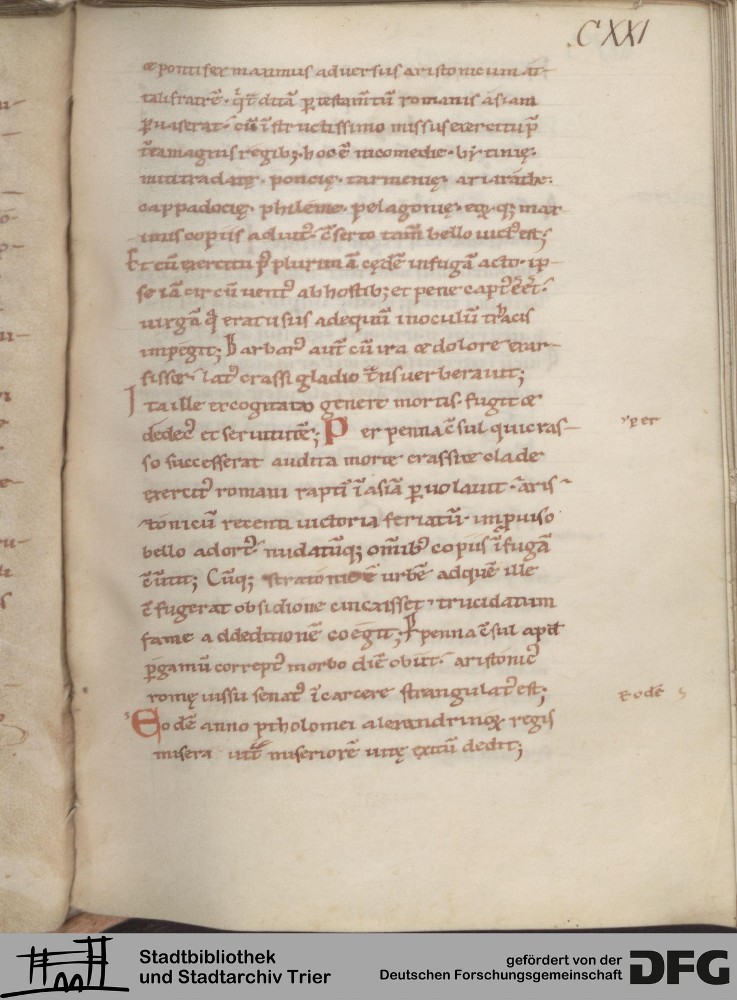 CXXI
& pontifex maximus adversus aristonicum at-
tali fratrẽ. q̃ tditã p̱ testam̃tũ romanis asiam
p̱uaserat. cũ ĩstructissimo missus exercitu p̱
tea magnis regib; hoc ẽ nicomede. bytinię.
mitridate. pontię. tarmenię. ariarathe.
cappadocię. phileme. pelagonię. eoꝝ q; max-
imis copiis adiut᾿. c̃serto tam̃ bello uict᾿ est;
Et cũ exercitu p᾿ plurimã cędẽ in fugã acto. ip-
se iã circũuent᾿ ab hostib; et pene capt᾿ eẽt.
uirgã q̃ erat usus ad equũ in oculũ tracis
impegit; Barbar᾿ aut̃ cũ ira & dolore exar-
sisset. lat᾿ crassi gladio trñsuerberauit;
Ita ille excogitato genere mortis. fugit &
dedec᾿ et seruitutẽ; Perpenna c̃sul qui cras-
so successerat audita morte crassi & clade
exercit᾿ romani raptĩ ĩ asiã p̱uolauit. aris-
tonicũ recenti uictoria feriatũ. imp̱uiso
bello adort᾿. nudatũq; om̃ib᾿ copiis ĩ fugã
c̃uertit; Cũq; stratonicẽ urbẽ ad quẽ ille
c̃fugerat obsidione cinxisset, trucidatum
fame ad deditionẽ coegit; Ppenna c̃sul apd̃
p̱gamũ corrept᾿ morbo diẽ obiit. aristonic᾿
romę iussu senat᾿ ĩ carcere strangulat᾿ est;
Eodẽ anno ptholomei alexandrinoꝝ regis
misera uita miseriorẽ uitę exitũ dedit;
per
Eodẽ
Stadtbibliothek
und Stadtarchiv Trier
gefördert von der
Deutschen Forschungsgemeinschaft
DFG